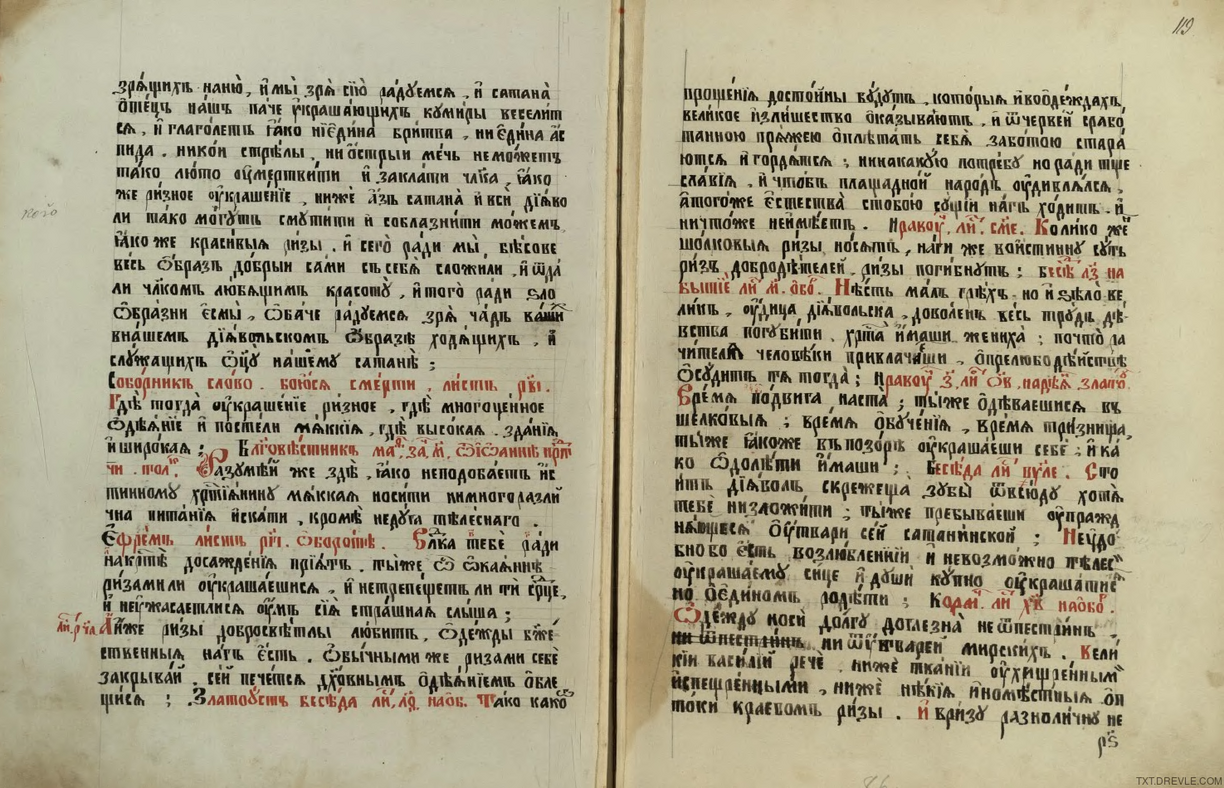 зря́щихъ наню̀, и҆мы̀ зря̀ сїѐ ра́дуемся, и҆ сатана̀
ѻ҆те́цъ на́шъ па́че ᲂу҆краша́ющихъ куми́ры весели́т
ся, и҆ глаго́летъ ꙗ҆́ко ниѐди́на бри́тва, ни е҆ди́на а҆с
пида. ни ко́и стрѣ́лы, ни ѻ҆́стрыи ме́чь не мо́жетъ
та́ко лю́то ᲂу҆мертви́ти и҆ закла́ти чл҃ка, ꙗ҆́ко
же ри́зное ᲂу҆краше́нїе, нижѐ а҆́зъ сатана̀ и҆ всѝ дїа́во
ли та́ко мо́гутъ смути́ти и҆ соблазни́ти мо́жемъ
ꙗ҆́коже краси́выя ри́зы. и҆ сего̀ ра́ди мы̀, бѣ́сове
весь ѻ҆́бразъ до́брыи са́ми съ себѐ сложи́ли, и҆ ѿда
ли чл҃комъ любя́щимъ красоту̀, и҆ того̀ ра́ди ѕло
ѡбра́зни е҆смы̀, ѻ҆ба́че ра́дуемся зря̀ ча́дъ ва́ши
в на́шемъ дїа́вольскомъ ѻ҆́бразѣ ходя́щихъ, и҆
слу́жащихъ ѻ҆ц҃у на́шему сатанѣ̀ ;
Собо́рникъ сло́во. бою́ся сме́рти, ли́стъ рв҃і.
Гдѣ̀ тогда̀ ᲂу҆краше́нїе ри́зное, гдѣ̀ многоцѣ́нное
ѻ҆дѣя́нїе и҆ посте́ли мя́ккїя, гдѣ̀ высо́кая. зда́нїя
и҆ широ́кая ; Бл҃говѣ́стникъ ма. за. м҃. ѽ і҆ѡа́ннѣ прⷣт
чи. тол. Разумѣ́й же здѣ̀, ꙗ҆́ко неподоба́етъ и҆с
тинному хрⷭ҇тїа́нину мя́ккая носи́ти ни много разли́
чна пита́нїя и҆ска́ти, кромѣ̀ неду́га тѣле́снаго.
Е҆фре́мъ ли́стъ рч҃і. ѡборо́тѣ. Вл҃ка тебѐ ра́ди
на кр҃тѣ досажде́нїя прїя́тъ. ты́же ѽ ѻ҆кая́нне
ри́зами ли ᲂу҆краша́ешися, и҆ нетрепе́щетъ ли ти срⷣце,
и҆ неᲂужаса́етлися ᲂу҆́мъ сїя̀ стра́шная слы́ша ;
ли. рч҃л. А҆́йже ри́зы добросвѣ́тлы лю́битъ, ѻ҆де́жды бж҃е
ственныя на́гъ е҆́сть. ѻ҆бы́чными же ри́зами себѐ
закрыва́й. се́й пече́тся дх҃о́внымъ ѻ҆дѣя́нїемъ ѻ҆бле
щися ; Златоу́стъ бесѣ́да ли, л҃ѳ. на ѻб. Та́ко како
119
проще́нїя досто́йны бу́дутъ, кото́рыя и҆ во ѻ҆де́ждахъ,
вели́кое и҆зли́шество ѻ҆ка́зываютъ, и҆ ѿ черве́й срабо́
танною пря́жею ѻ҆плѣта́тъ себѐ забо́тою стара́
ются и҆ гордя́тся ; ни какую по́требу но ра́ди тще
сла́вїя, и҆ что́бъ площадно́й наро́дъ ᲂу҆дивля́лся,
а҆ того́же е҆стества̀ с тобо́ю су́щїй на́гъ хо́дитъ. и҆
ничто́же неи҆мѣ́етъ. Нракоуⷱ. ли. см҃е. Коли́ко же
шо́лковыя ри́зы но́сятъ, на́ги же вои́стинну су́ть
ри́зъ добродѣ́телей, ри́зы поги́бнутъ ; бесѣⷣ л҃з на
бы́тїе ли м҃. ѻбо. Нѣ́сть ма́лъ грѣ́хъ. но и҆ ѕѣло̀ ве
ли́къ, ᲂу҆́дица дїа́вольска, дово́ленъ ве́сь тру́дъ дѣ́
вства погуби́ти. хрⷭ҇та̀ и҆́маши жениха̀ ; почто̀ ра
чи́телѧ человѣ́ки привлача́еши, ѻ҆ прелюбодѣ́йствѣ
ѻ҆су́дитъ тя тогда̀ ; Нракоуⷱ з҃. ли ѻ҃в, на дїея златоⷹ.
Время по́двига наста̀ ; ты́же ѻ҆дѣва́ешися въ
ше́лковыя ; вре́мя ѻ҆буче́нїя, вре́мя три́зница,
ты́же ꙗ҆́коже въ позо́рѣ ᲂу҆краша́еши себѐ ; и҆ ка́
ко ѻ҆долѣ́ти и҆́маши ; Бесѣ́да ли в҃у ле. Сто
и́тъ дїа́волъ скреже́ща зу́бы ѿвсю́ду хотя̀
тебѐ низложи́ти ; ты́же пребыва́еши ᲂу҆пражд
ня́ющеся ѻ҆ у҆́твари се́й сатани́нской ; Неᲂу҆до́
бно бо е҆́сть возлю́бленнїи и҆ невозмо́жно тѣлес
ᲂу҆краша́ему си́це и҆ души́ ку́пно ᲂу҆краша́тис
но ѻ҆ е҆ди́номъ радѣ́ти ; Корм. ли хв҃ на ѻбо.
ѻ҆де́жду носѝ до́лгу до глезна̀ неѿпестри́нъ.
ни ѿ ᲂу҆́тварей мирски́хъ. вели́
кїи васи́лїй речѐ, нижѐ тка́нїи ᲂу҆хищре́нным
и҆спещре́нными, нижѐ нѣ́кїя и҆номѣ́стныя ѻ҆п
токи краевомъ ри́зы. И҆ в ри́зу разноли́чну не
рѕ҃
TXT.DREVLE.COM